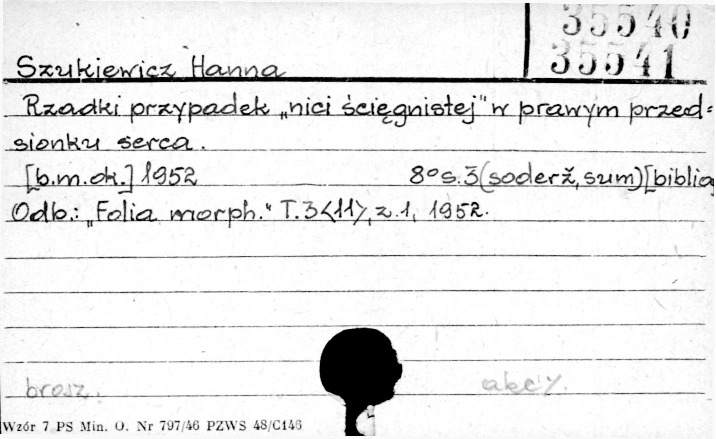 35540
35541
Szukiewicz Hanna
Rzadki przypadek „nici ścięgnistej" w prawym przed=
sionku serca.
[b.m.ok.] 1952 8° s.3 (soderž, sum) [bibliog
Odb.: „Folia morph." T.3<11>, z.1, 1952.
brosz.
Wzór 7 PS Min. O. Nr 797/46 PZWS 48/C146